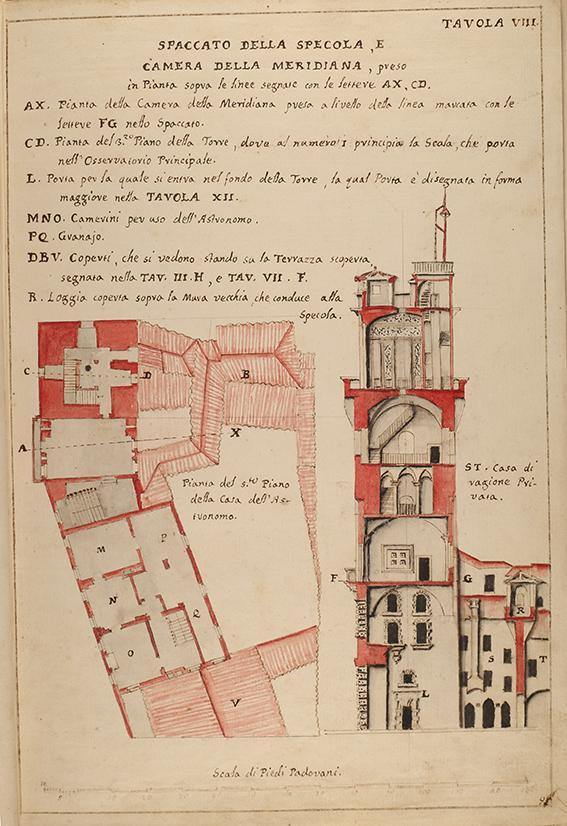 TAVOLA VIII.
SPACCATO DELLA SPECOLA, E
CAMERA DELLA MERIDIANA, preso
in Pianta sopra le linee segnate con le lettere AX, CD.
AX. Pianta della Camera della Meridiana presa a livello della linea marcata con le
lettere FG nello Spaccato.
CD. Pianta del 3.zo Piano della Torre, dove al numero 1 principia la Scala, che porta
nell'Osservatorio Principale.
L. Porta per la quale si entra nel fondo della Torre, la qual Porta è disegnata in forma
maggiore nella TAVOLA XII.
MNO. Camerini per uso dell'Astronomo.
PQ. Granajo.
DBV. Coperti, che si vedono stando su la Terrazza scoperta,
segnata nella TAV. III. H, e TAV. VII. F.
R. Loggia coperta sopra la Mura vecchia, che conduce alla
Specola.
C
D
B
A
X
Pianta del Piano
della Casa dell'As-
tronomo.
ST. Casa di
ragione Pri-
vata.
M
P
N
Q
O
V
F
G
R
S
T
L
Scala di Piedi Padovani.